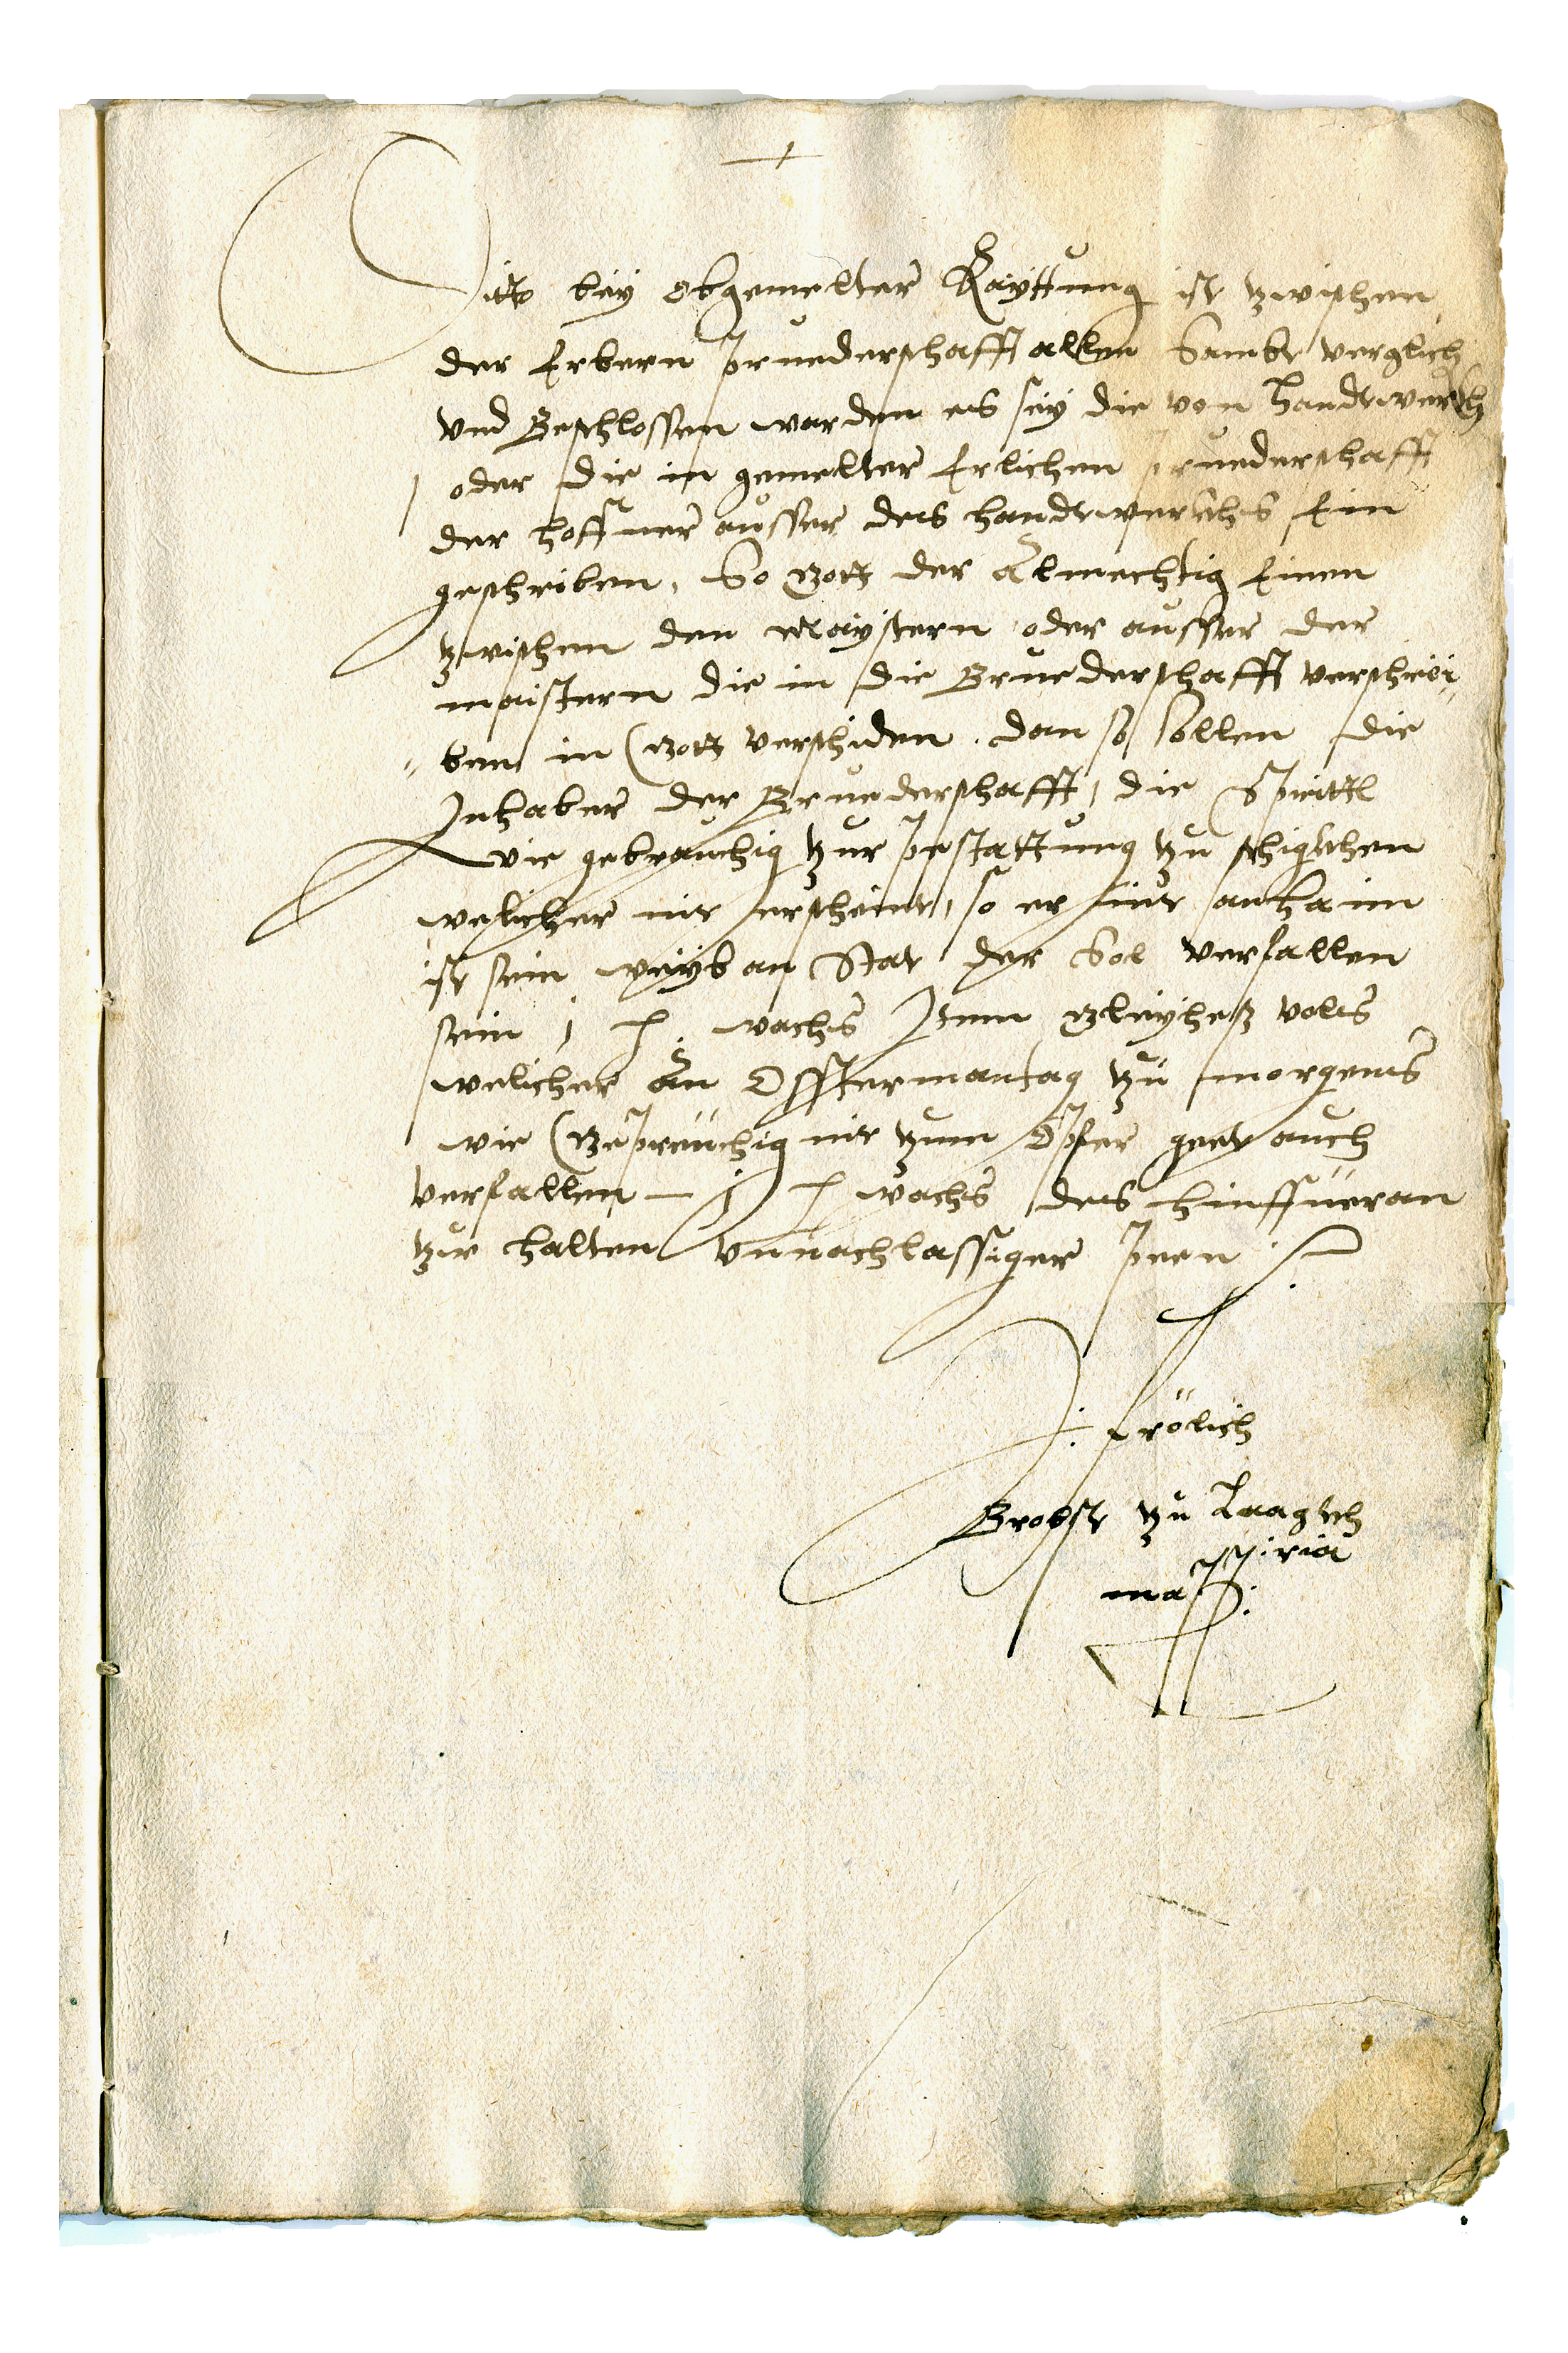 bey Obgemelter Rayttung ist zwischen
der Erbern pruederschafft allen Sambt verglich
vnd Beschlossen warden es sey die von handtwerckh
oder die in gemelter Erlichen pruederschafft
der haffner ausser des handtwerckhs Ein
geschriben, So Gott der Almechtig Einen
zwischen den Maystern oder ausser der
maistern die in die Bruederschafft verschri-
ben in Gott verschiden, dan so sollen die
Inhaber der Bruederschafft, die Spittl
wie gebrauchig zur pestattung zu schigkhen
welicher nit erscheint, so er nit anhaim
ist sein weyb an Stat der Sol verfallen
sein j wachs Item Gleyhes vals
welicher An Osstermantag zu morgens
wie Gepreuchig nit zum Opfer geet auch
verfallen — j wachs des hinffüeran
zw halten vnnachlassiger peen
frölich
Brobst zu